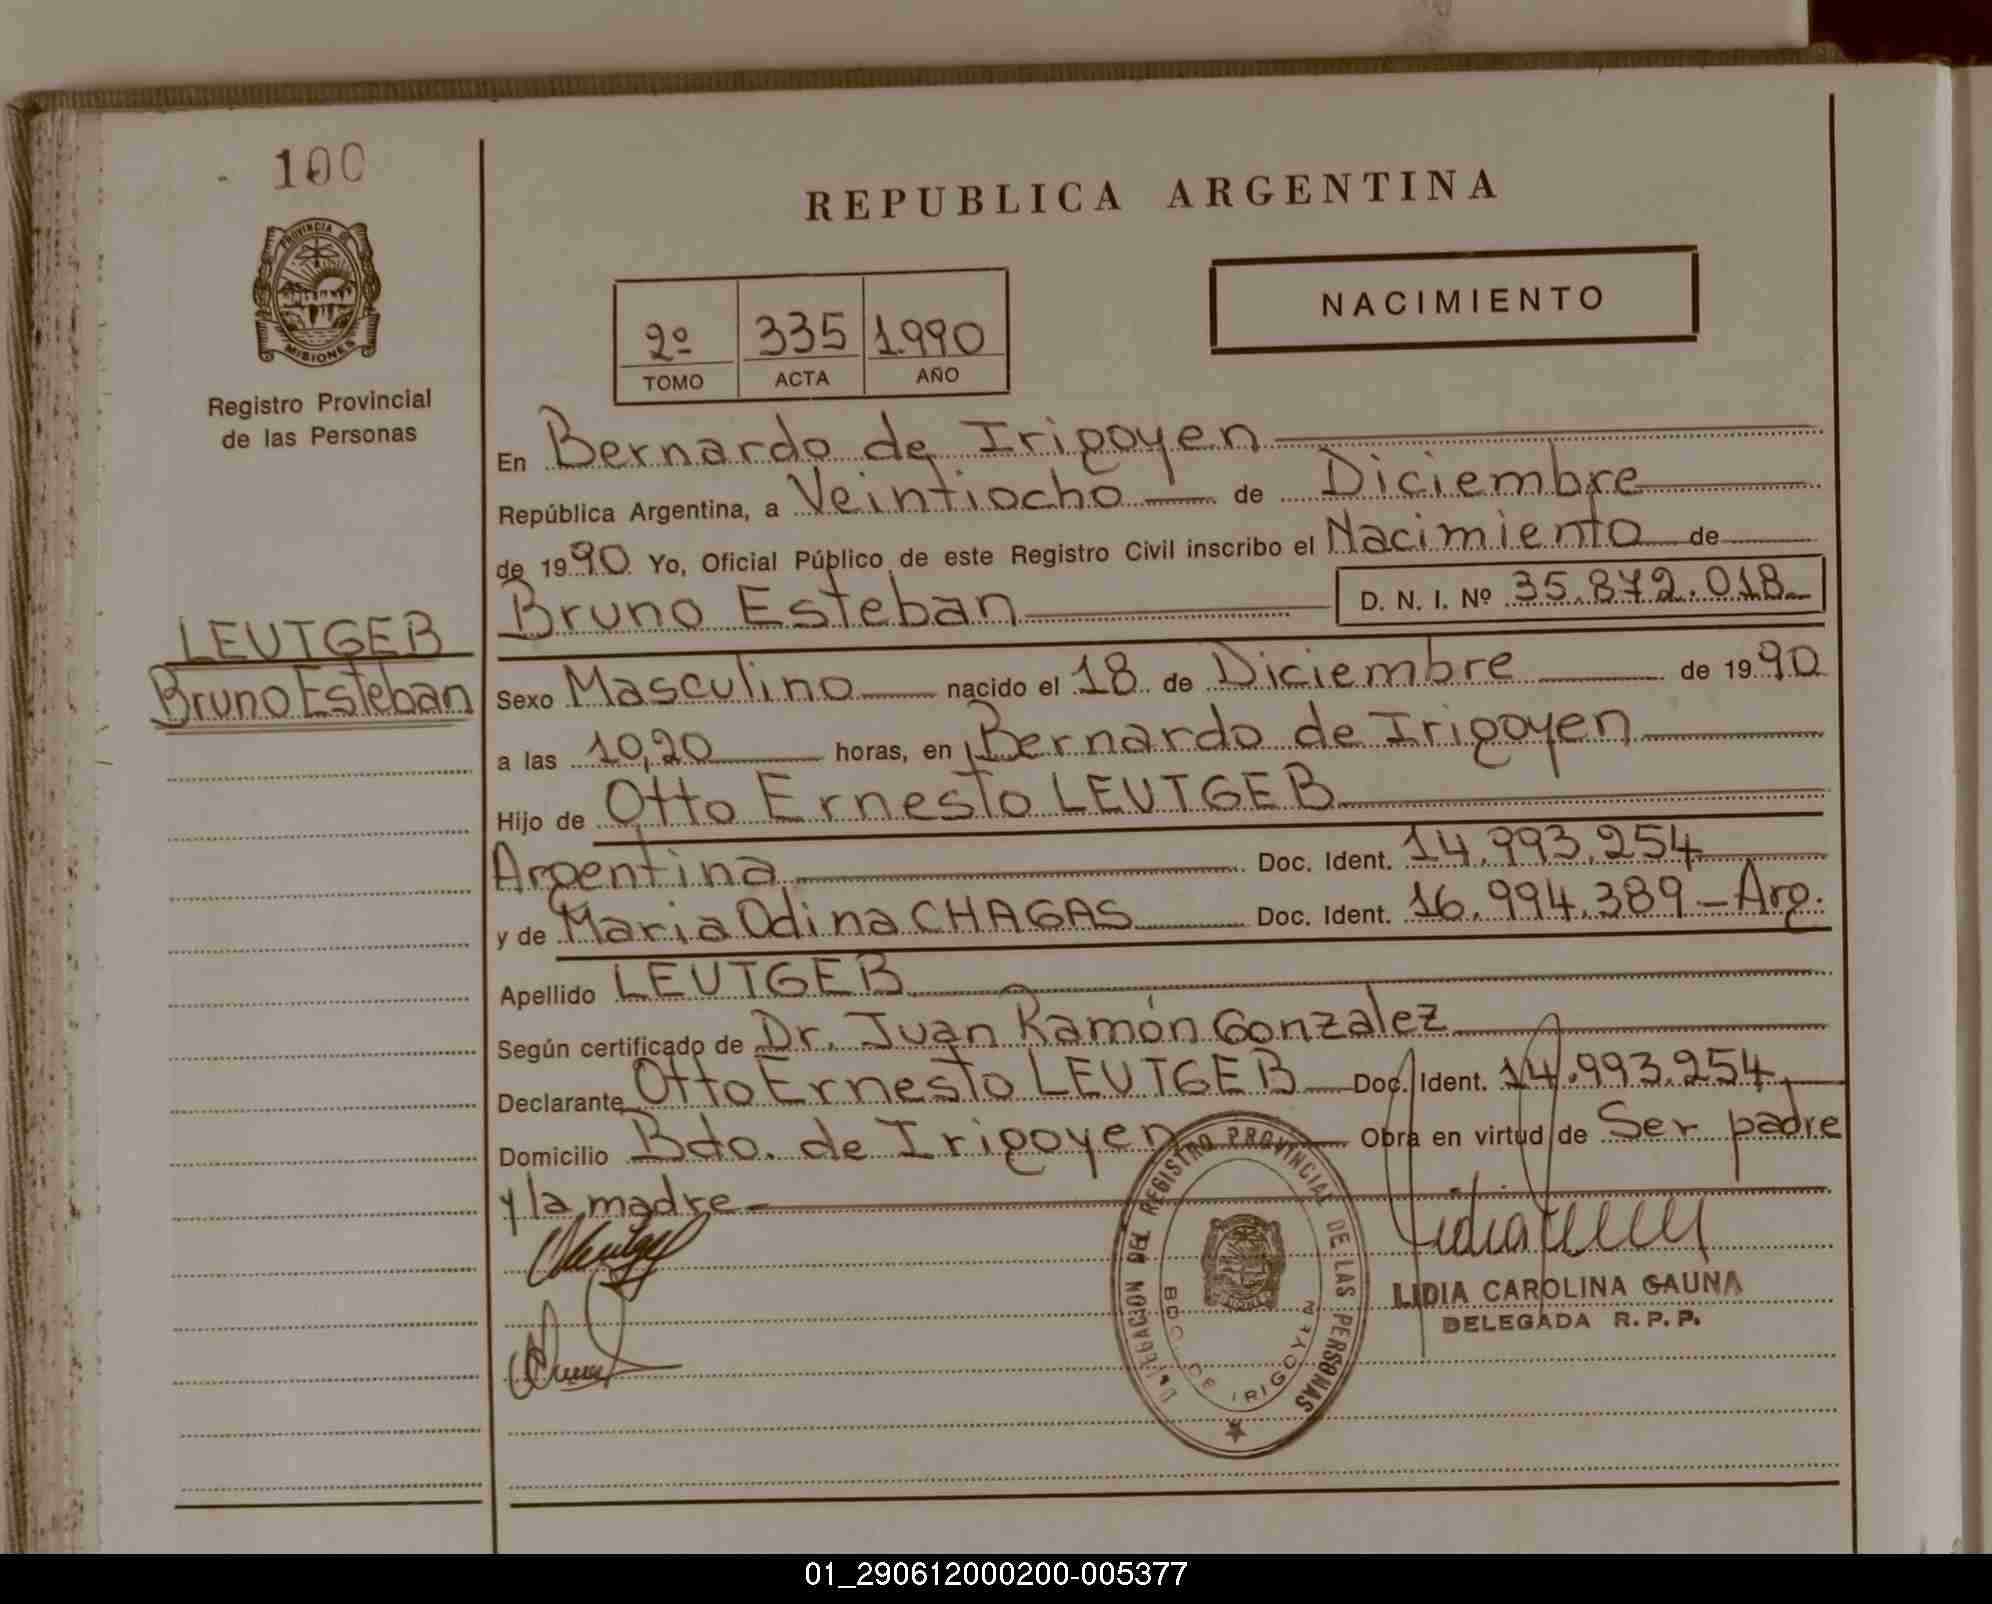 100
PROVINCIA D
MISIONES
Registro Provincial
de las Personas
LEUTGEB
Bruno Esteban
REPUBLICA ARGENTINA
NACIMIENTO
2º 335 1.990
TOMO ACTA AÑO
En Bernardo de Irigoyen
República Argentina, a Veintiocho de Diciembre
de 1990 Yo, Oficial Público de este Registro Civil inscribo el Nacimiento de
Bruno Esteban D. N. I. Nº 35.872.018
Sexo Masculino nacido el 18 de Diciembre de 1990
a las 10,20 horas, en Bernardo de Irigoyen
Hijo de Otto Ernesto LEUTGEB
Argentina Doc. Ident. 14.993.254
y de Maria Odina CHAGAS Doc. Ident. 16.994.389 - Arg.
Apellido LEUTGEB
Según certificado de Dr. Juan Ramón Gonzalez
Declarante Otto Ernesto LEUTGEB Doc. Ident. 14.993.254
Domicilio Bdo. de Irigoyen Obra en virtud de Ser padre
y la madre
DELEGACION DEL REGISTRO PROVINCIAL DE LAS PERSONAS
BDO. DE IRIGOYEN
LIDIA CAROLINA GAUNA
DELEGADA R. P. P.
01_290612000200-005377